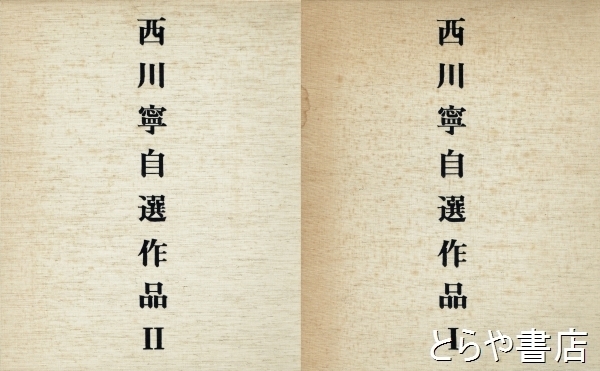 西川寧自選作品I
西川寧自選作品II
とらや書店